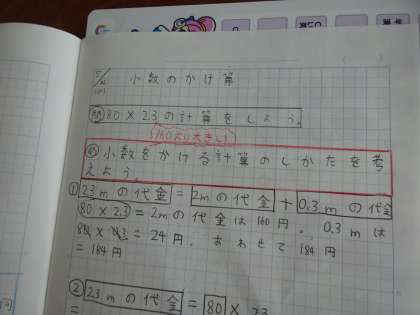 小数のかけ算
問 80×2.3の計算をしよう。
(160より大きい)
め 小数をかける計算のしかたを考
えよう。
① 2.3mの代金=2mの代金+0.3mの代金
80×2.3=2mの代金は160円。0.3mは
=24円。あわせて184円
=184円
② 2.3mの代金=80×23
=